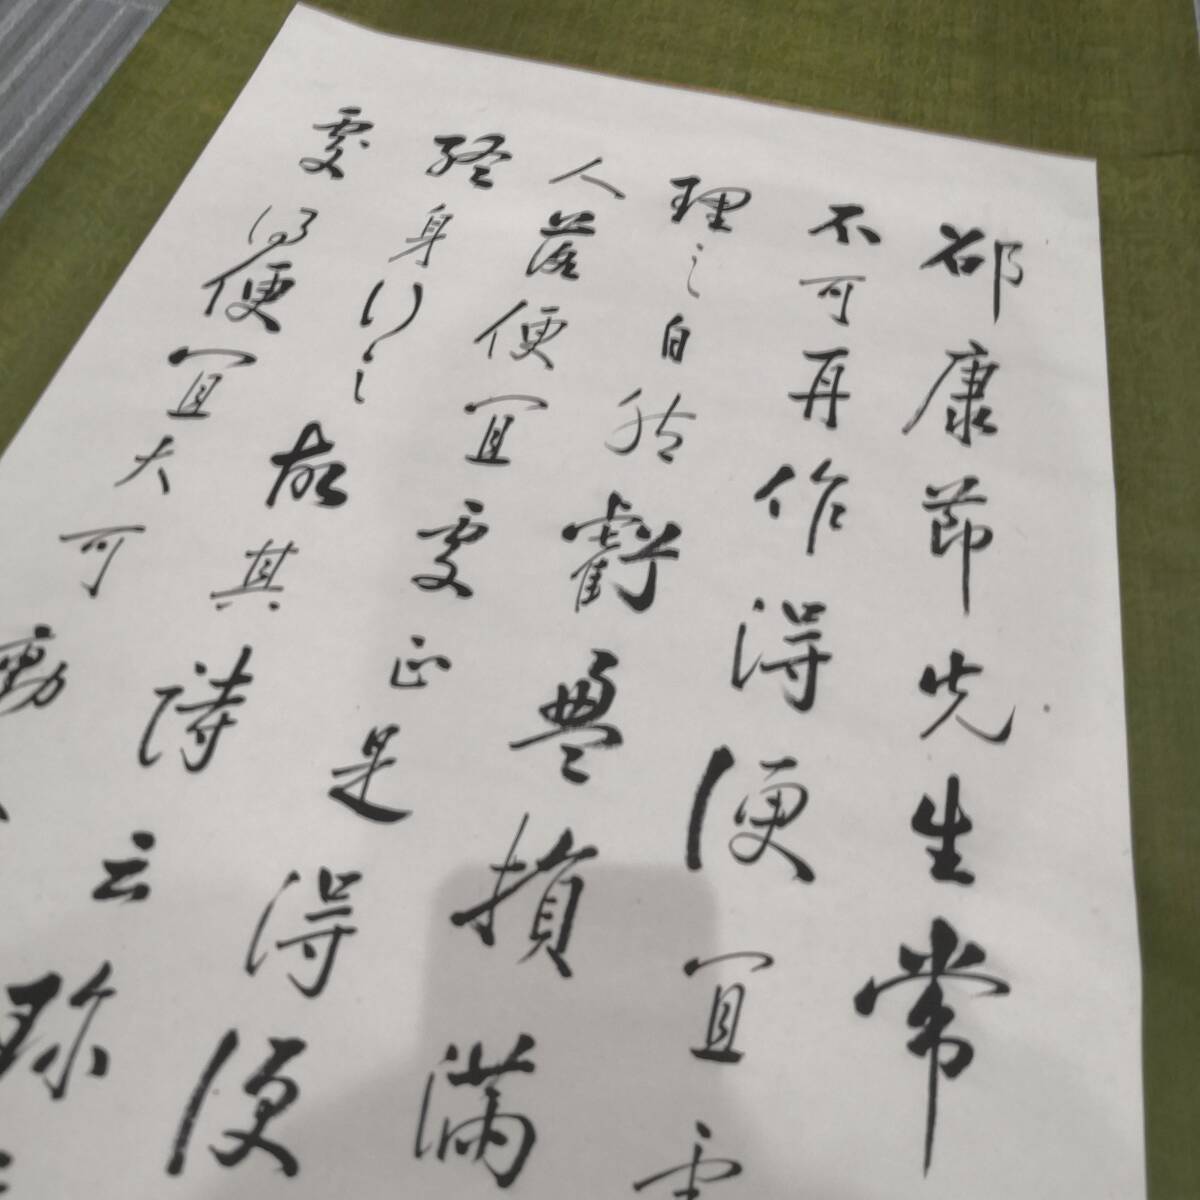 邵康節先生常
不可再作得便宜
理之自然虧盈損滿
人落便宜處正是得便
終身行之故其詩云珎
處得便宜大可
動